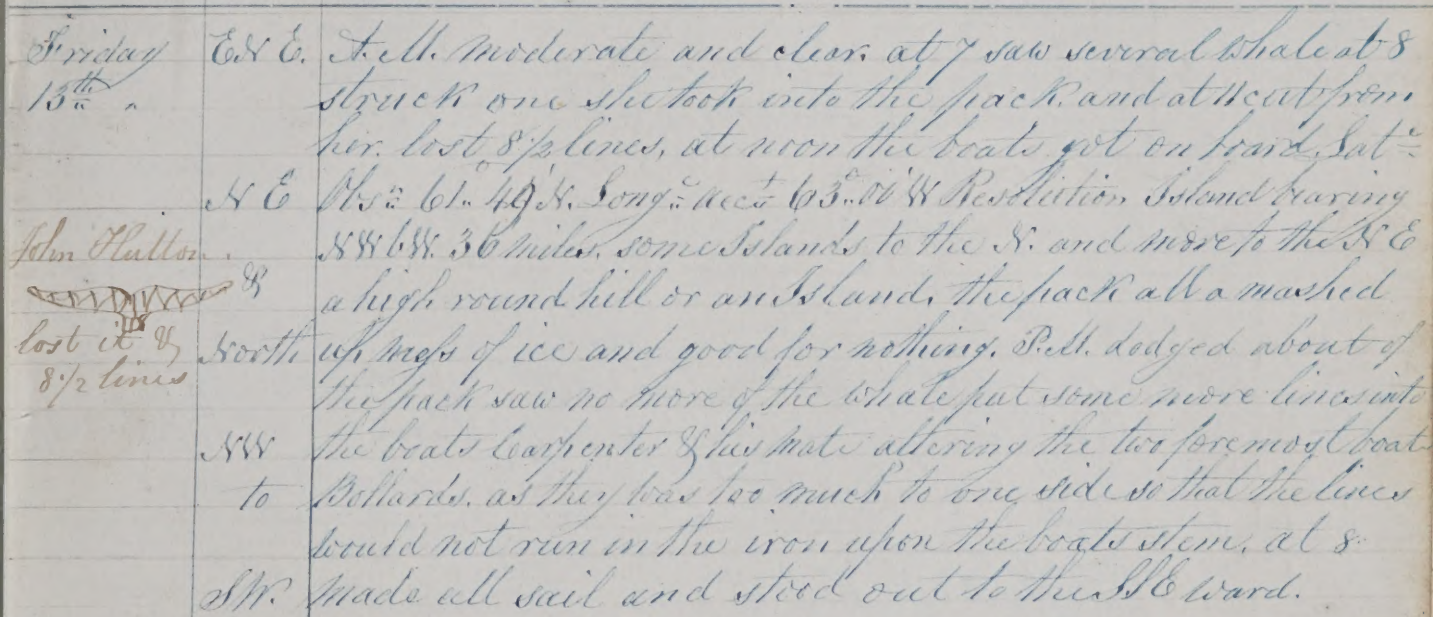 Friday E N E. A.M. moderate and clear. at 7 saw several whale at 8
13th " struck one she took into the pack. and at 11 cut from
her. lost 8 1/2 lines, at noon the boats got on board. Latᵉ
N E Obsⁿ 61.. 49 N. Longᵉ accᵗ 63°.. 00' W Resolution Island bearing
John Hutton. N W b W. 36 miles. some Islands to the N. and more to the N E
& a high round hill or an Island, the pack all a mashed
lost it & North up mess of ice and good for nothing. P.M. dodged about of
8 1/2 lines the pack saw no more of the whale put some more lines into
NW the boats Carpenter & his mate altering the two foremost boat
to Bollards. as they was too much to one side so that the lines
would not run in the iron upon the boats stem. at 8
S W. made all sail and stood out to the S S E ward.